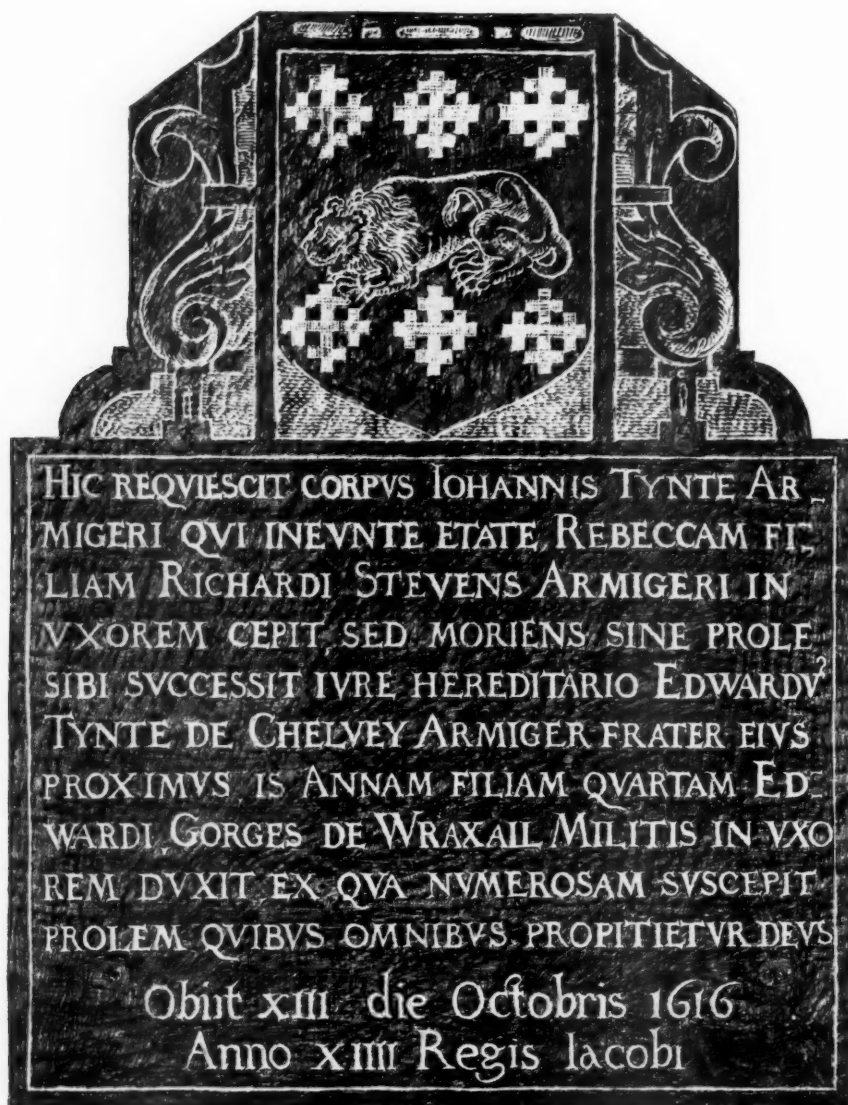 HIC REQVIESCIT CORPVS IOHANNIS TYNTE AR-
MIGERI QVI INEVNTE ETATE REBECCAM FI-
LIAM RICHARDI STEVENS ARMIGERI IN
VXOREM CEPIT, SED MORIENS SINE PROLE
SIBI SVCCESSIT IVRE HEREDITARIO EDWARDV⁹
TYNTE DE CHELVEY ARMIGER FRATER EIVS
PROXIMVS IS ANNAM FILIAM QVARTAM ED-
WARDI GORGES DE WRAXALL MILITIS IN VXO
REM DVXIT EX QVA NVMEROSAM SVSCEPIT
PROLEM QVIBVS OMNIBVS PROPITIETVR DEVS
Obiit XIII die Octobris 1616
Anno XIIII Regis Iacobi